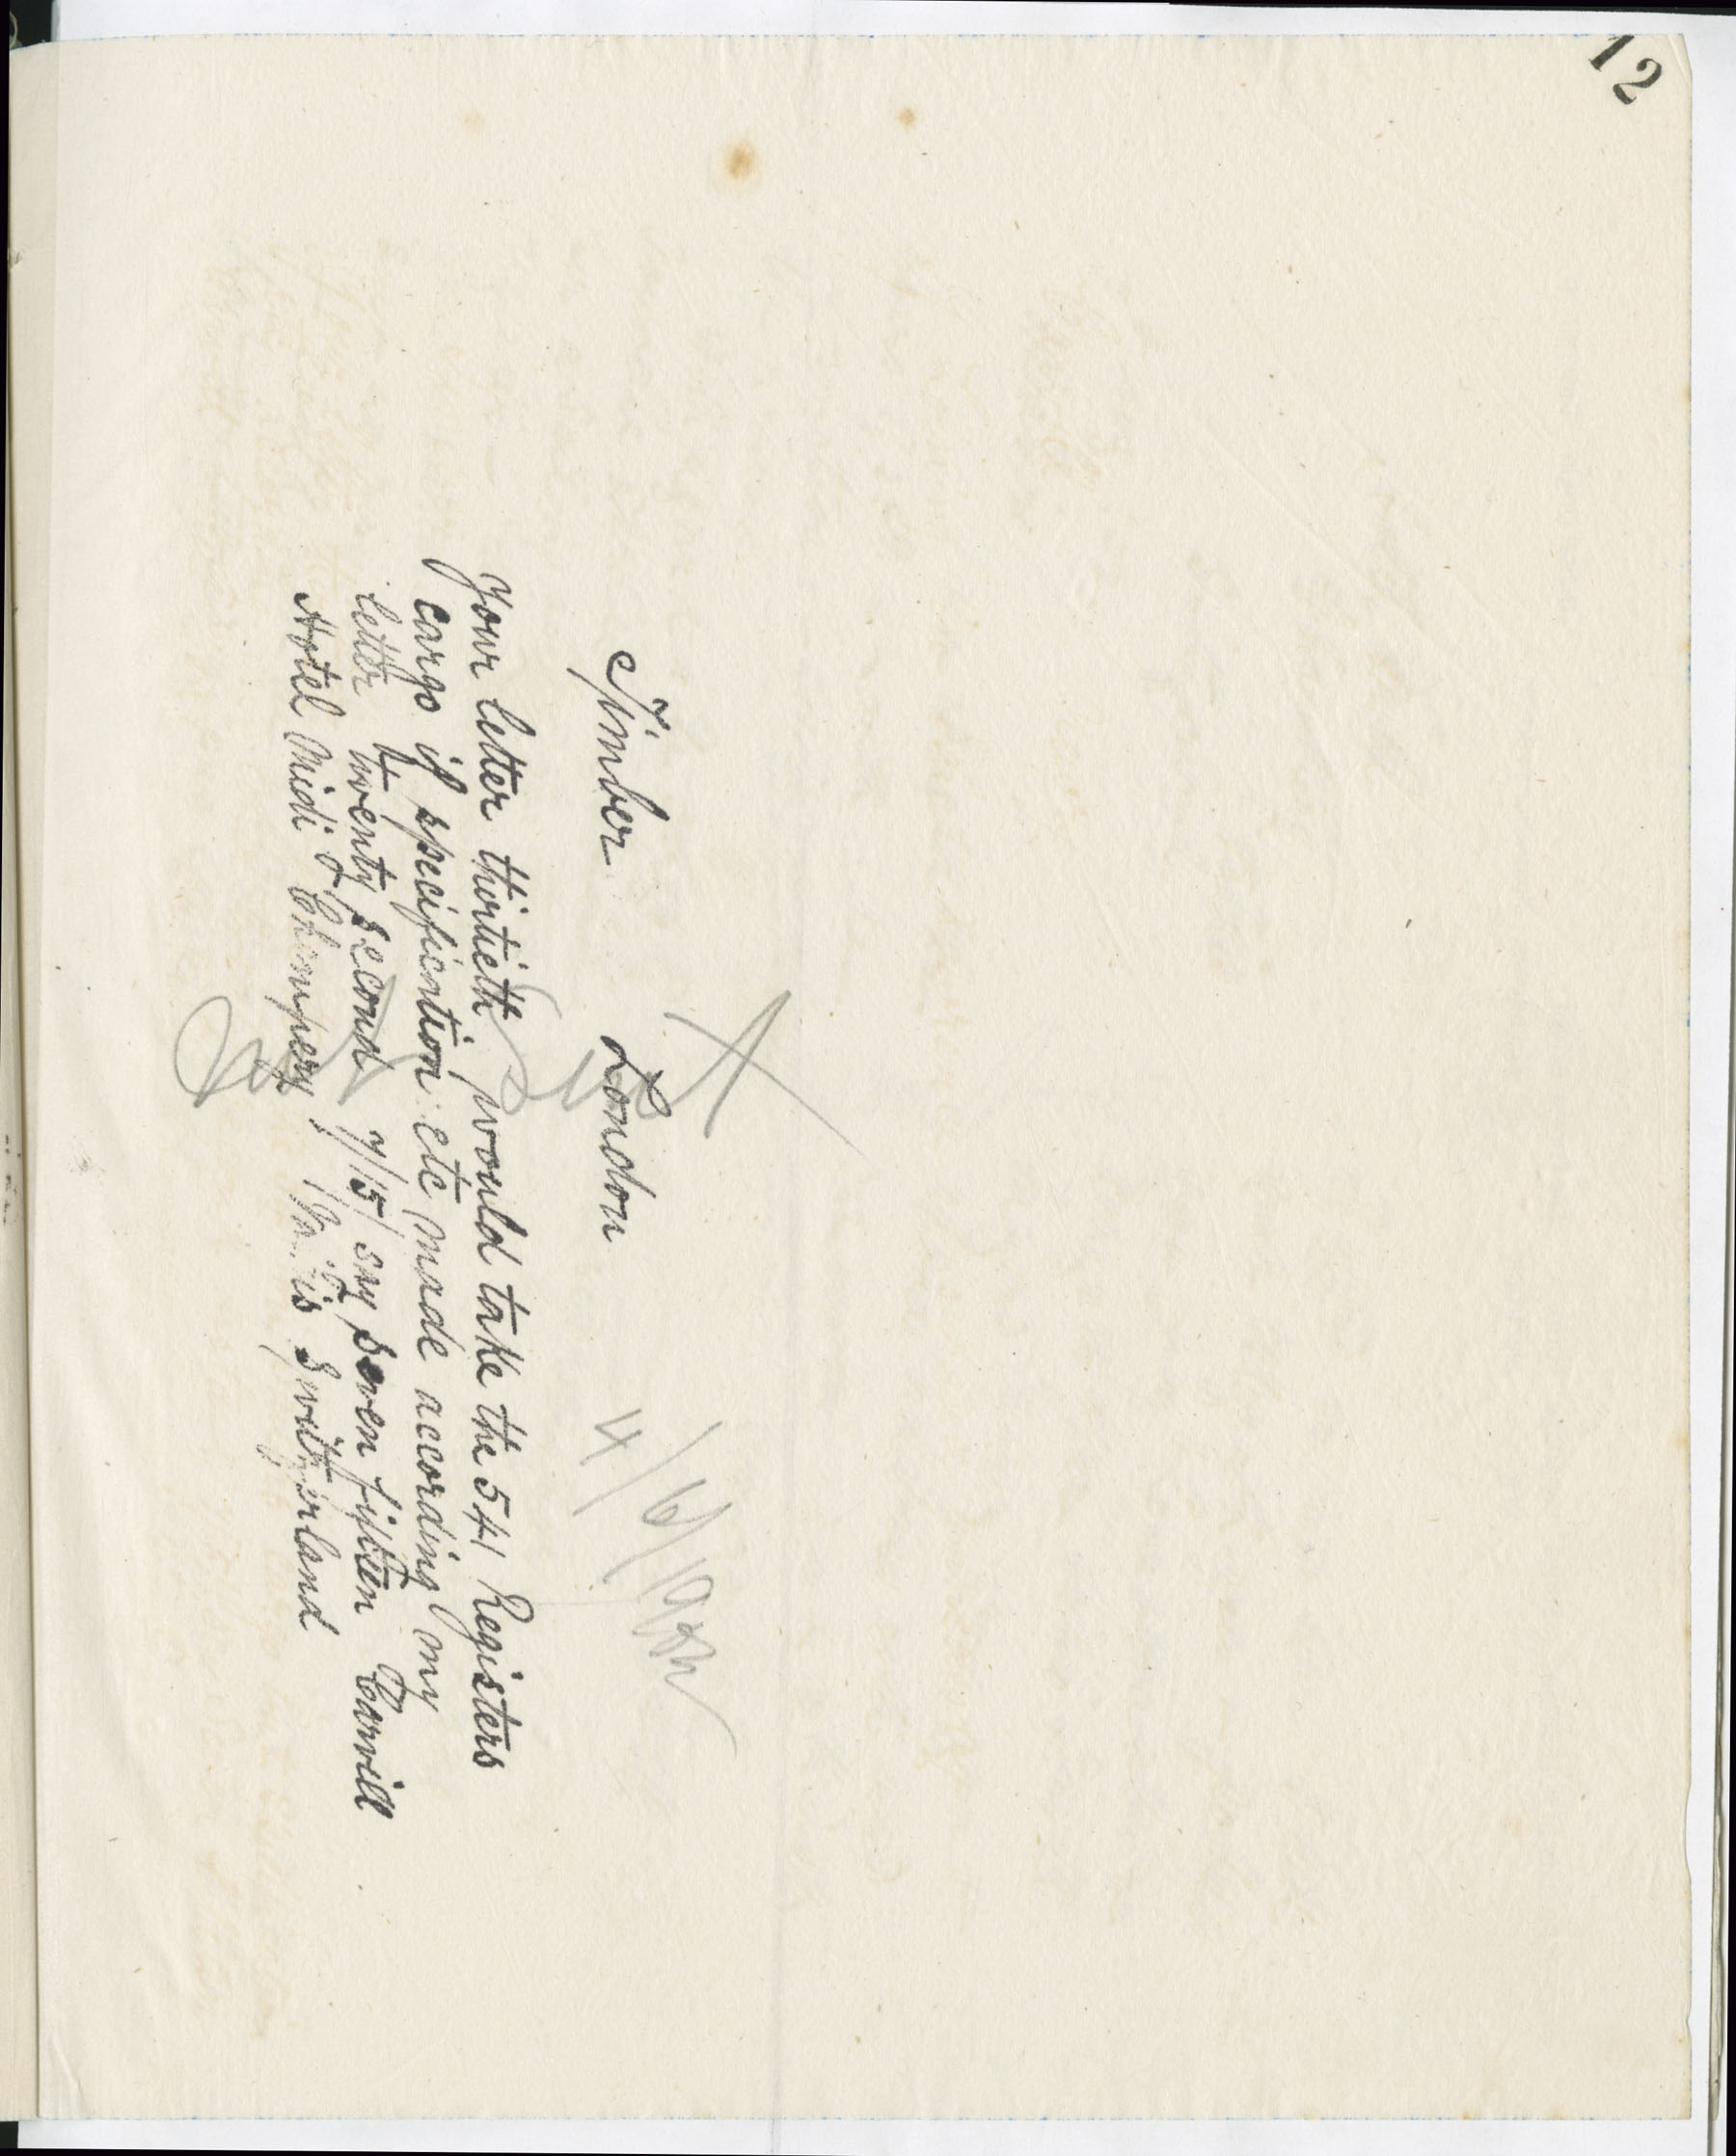 12
4/6/19
Timber London
Your letter thirtieth would take the 541 Registers
cargo if specification etc made according my
letter twenty second 7/15/ say seven fifteen Carvill
Hotel Midi Champery Switzerland